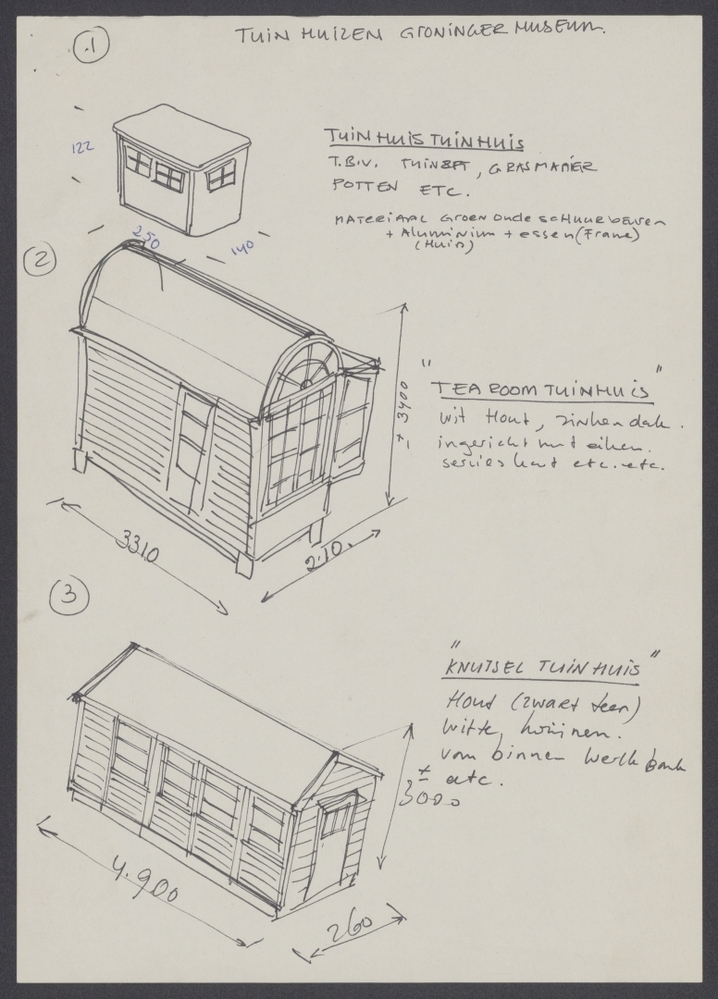 .1
TUIN HUIZEN GRONINGER MUSEUM.
122
250
140
TUINHUIS TUINHUIS
T.B.V. TUINSET, GRASMAAIER
POTTEN ETC.
MATERIAAL GROEN Oude schuurdeuren
+ Aluminium + essen (Frame)
(Huis)
2
± 3400
3310
2.10.
"TEA ROOM TUINHUIS"
wit Hout, zinken dak.
ingericht met eiken.
servies kast etc. etc.
3
"KNUTSEL TUINHUIS"
Hout (zwart teer)
witte kozijnen.
van binnen werkbank
etc.
± 3000
4.900
260